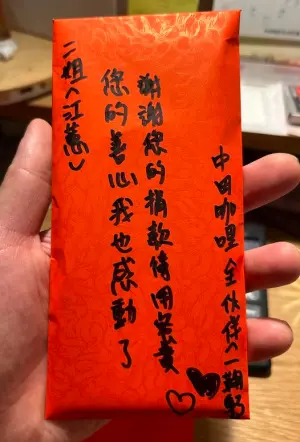 中田咖哩 全伙伴(一
謝謝您的捐款
您的善心我也感動了
二姐(江蕙)